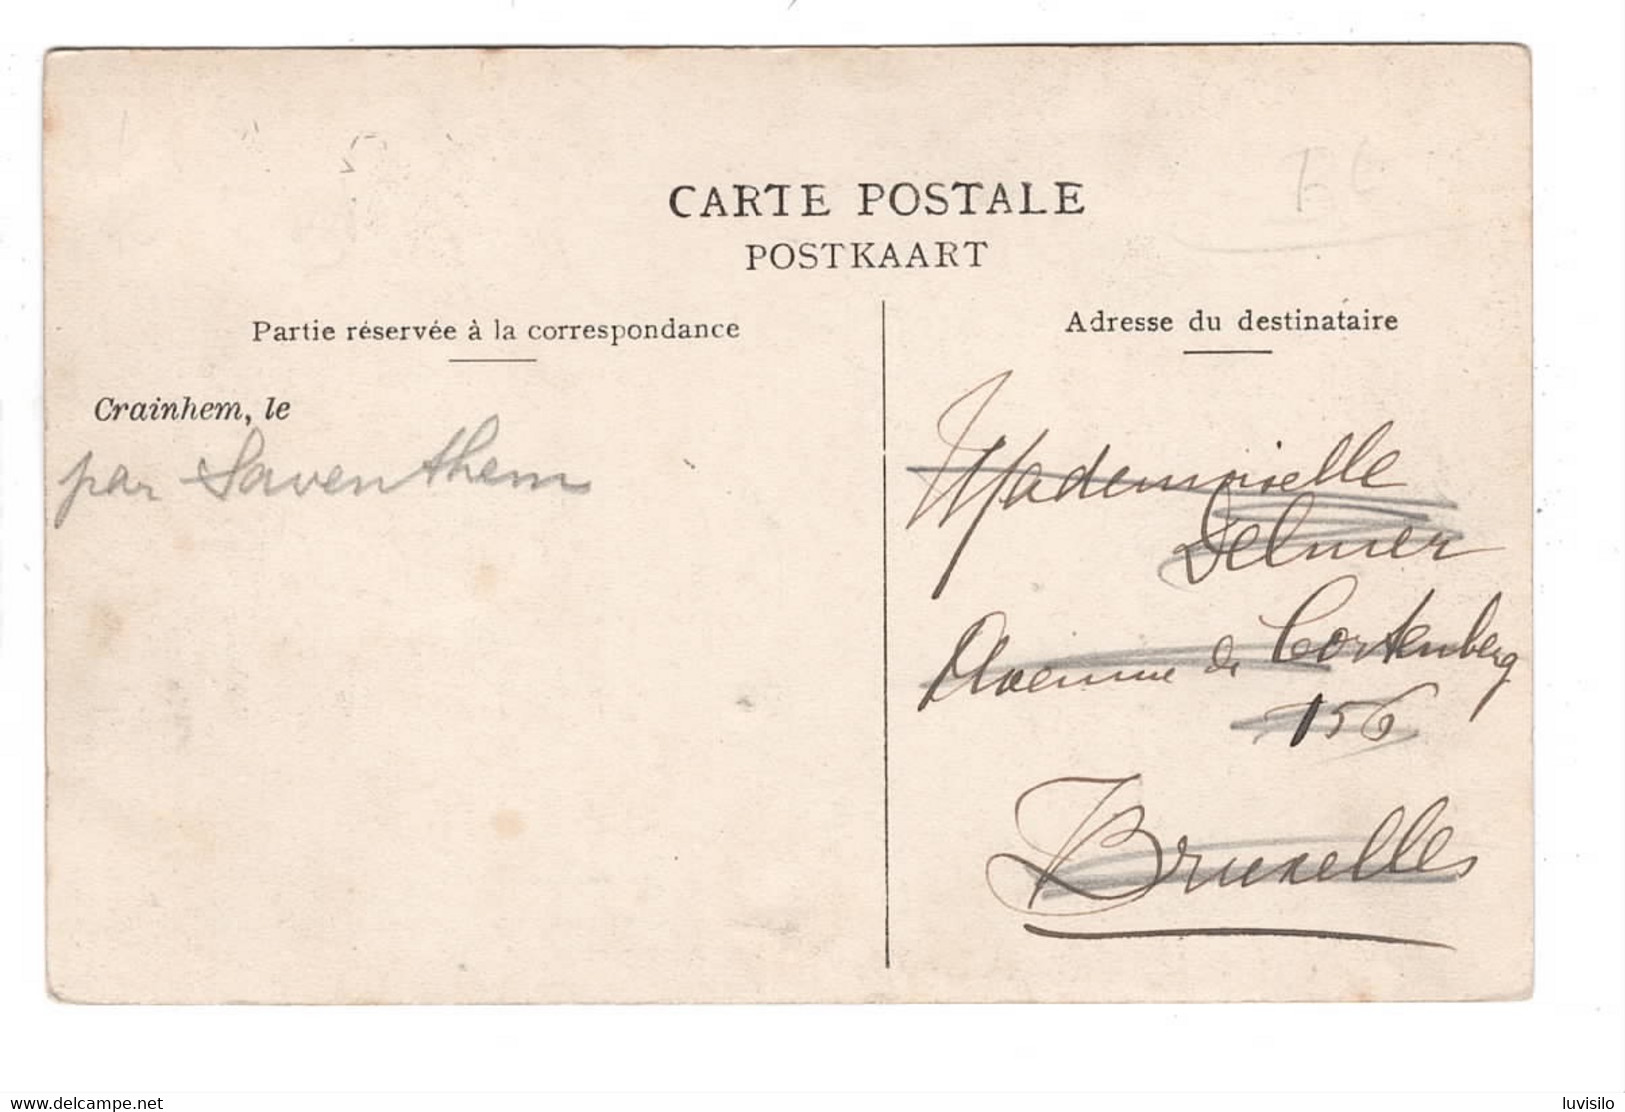 CARTE POSTALE
POSTKAART
Partie réservée à la correspondance
Crainhem, le
par Saventhem
Adresse du destinataire
Mademoiselle
Delmer
Avenue de Cortenberg
156
Bruxelles
www.delcampe.net
luvisilo